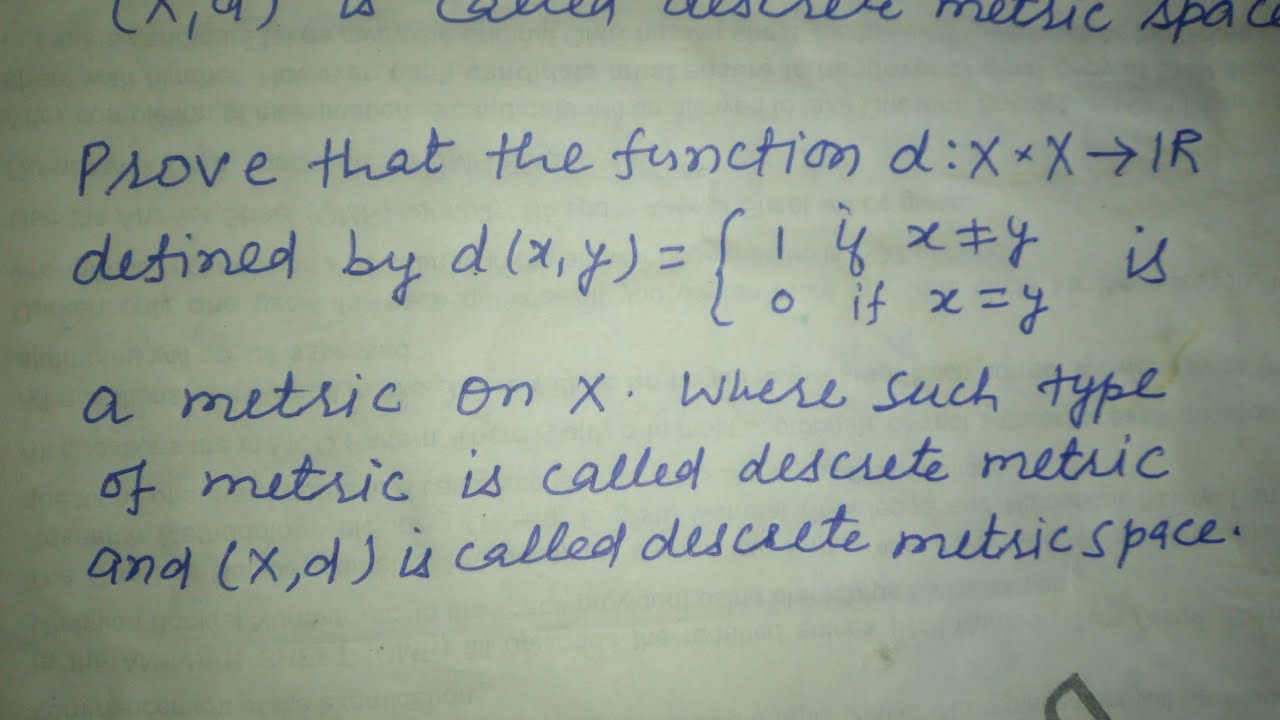 (X,d) is called descrete metric space
Prove that the function d:X×X→IR
defined by d(x,y) = { 1 if x≠y is
0 if x=y
a metric on X. Where such type
of metric is called descrete metric
and (X,d) is called descrete metric space.